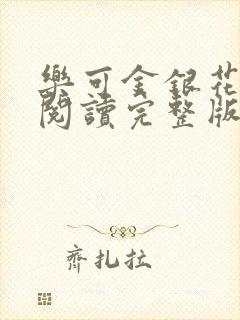 樂可金銀花
閱讀完整版
齊扎拉